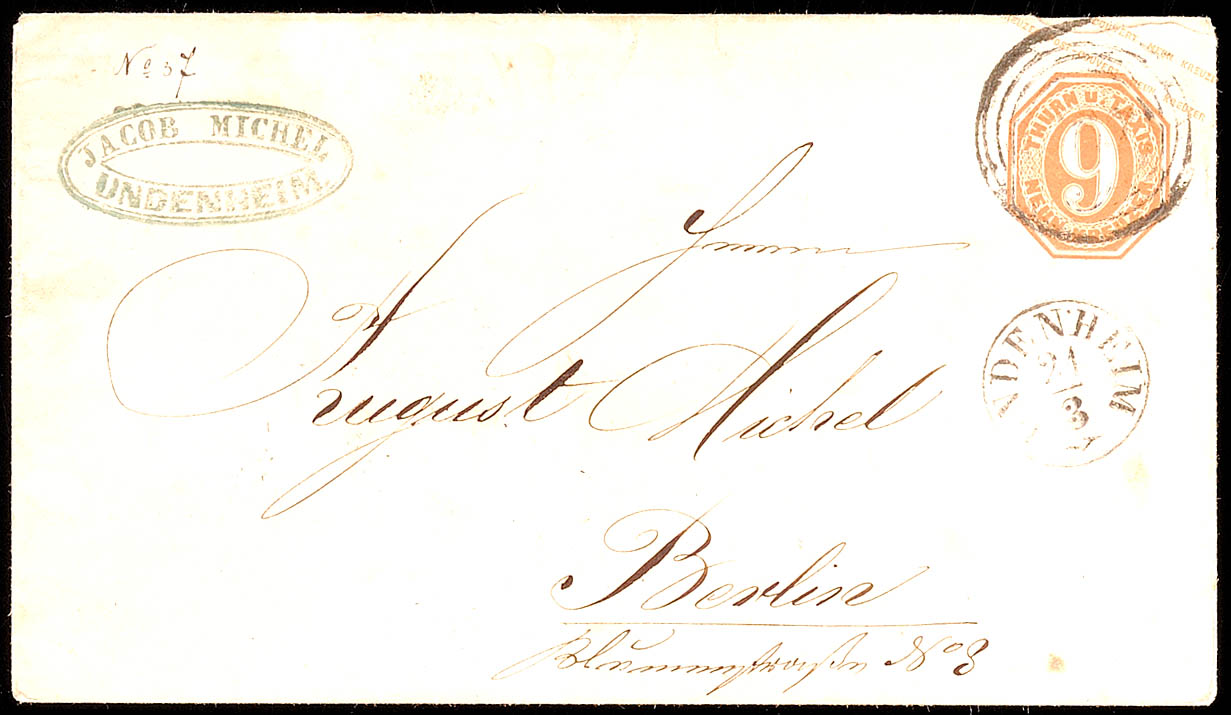 No 37
JACOB MICHEL
UNDENHEIM
THURN U. TAXIS
9
NEUN KREUZER
Herrn
August Michel
Berlin
Blumenstraße No 3
NDENHEIM
21
3